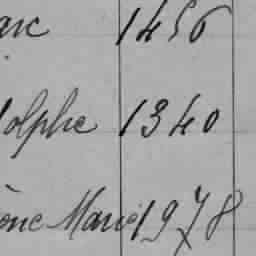 arc 1456
dolphe 1340
ène Marie 1978